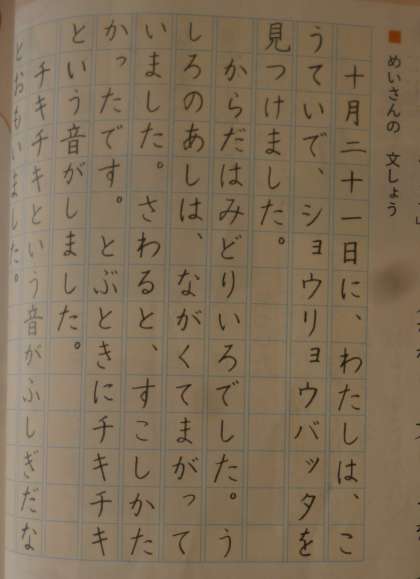 めいさんの 文しょう
十月二十一日に、わたしは、こ
うていで、ショウリョウバッタを
見つけました。
からだはみどりいろでした。う
しろのあしは、ながくてまがって
いました。さわると、すこしかた
かったです。とぶときにチキチキ
という音がしました。
チキチキという音がふしぎだな
とおもいました。